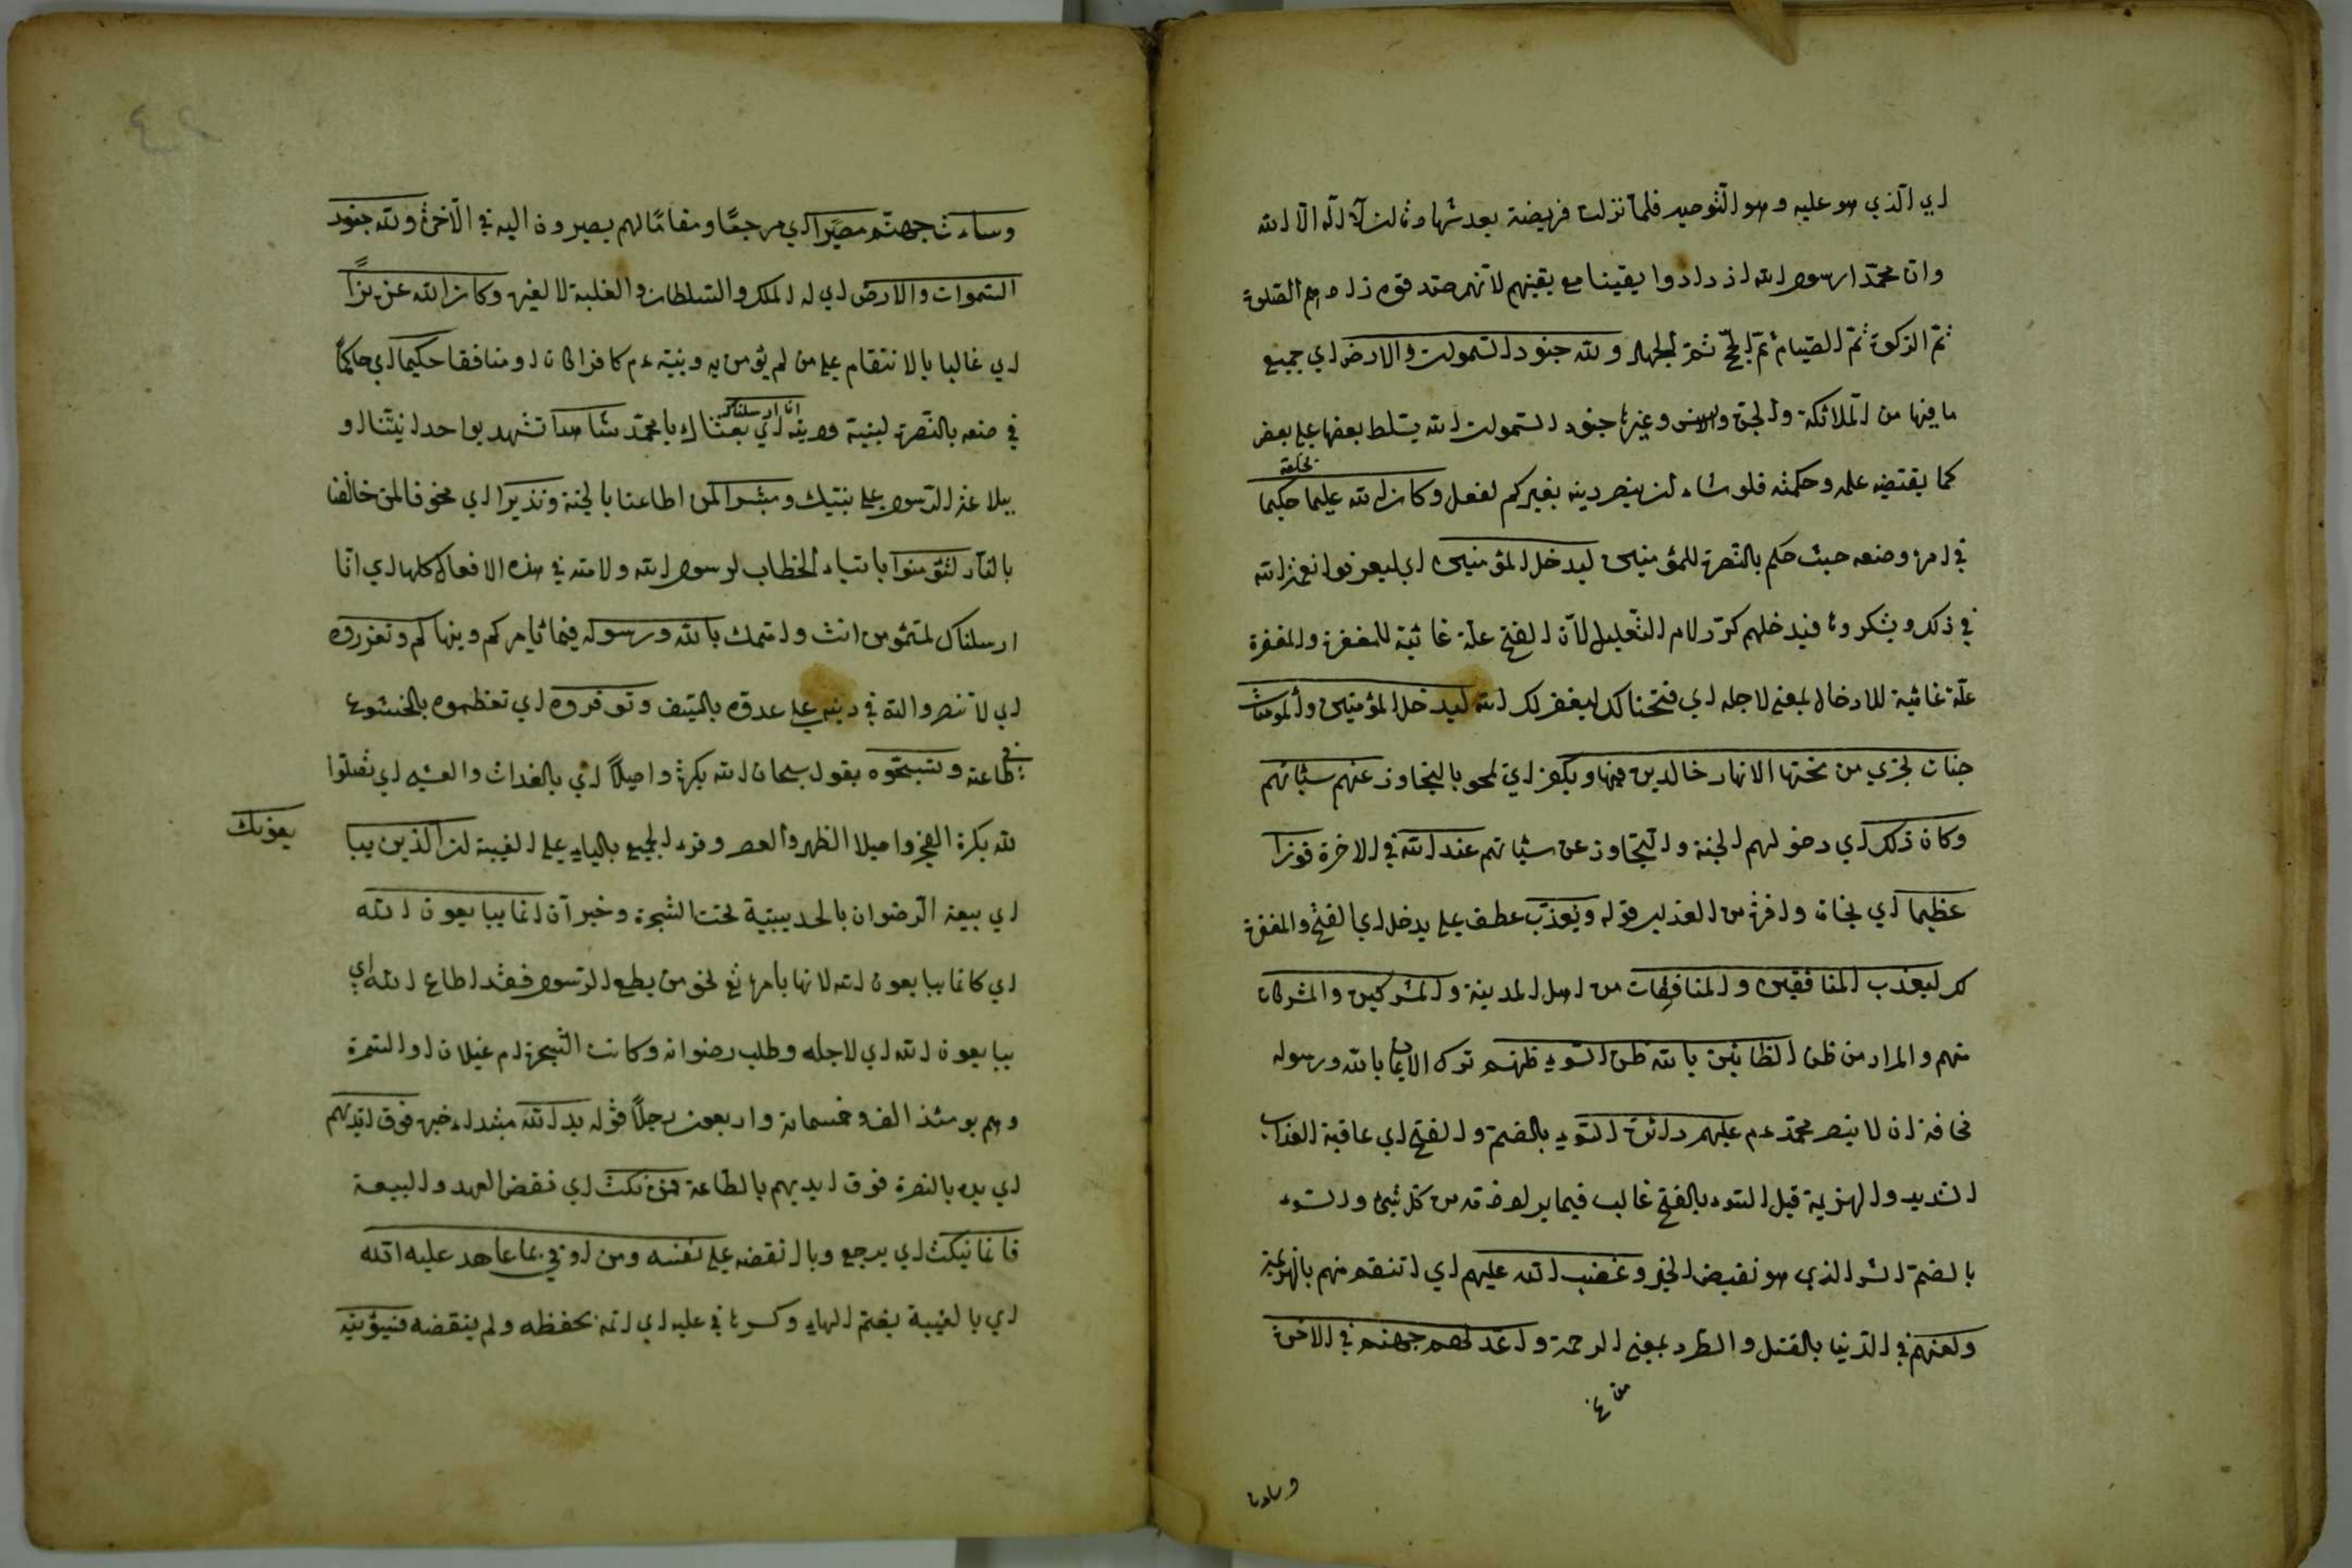 اي الذي هو عليه وهو التوحيد فلما نزلت فريضة بعد شهادة ان لا اله الا الله
وان محمدا رسول الله ازدادوا يقينا مع يقينهم لانهم صدقوه زادهم الصلوة
ثم الزكوة ثم الصيام ثم الحج ثم الجهاد ولله جنود السموات والارض اي جميع
ما فيها من الملائكة والجن والانس وغيرها جنود السموات لله يسلط بعضها على بعض
كما يقتضيه علمه وحكمته فلو شاء لن ينصر دينه بغيركم لفعل وكان الله عليما بخلقه حكيما
في امره وصنعه حيث حكم بالنصرة للمؤمنين ليدخل المؤمنين اي ليعرفوا نعمة الله
في ذلك ويشكروها فيدخلهم كرر لام التعليل لان الفتح علة غائية للمغفرة والمغفرة
علة غائية للادخال بمعنى لاجله اي فتحنا لك ليغفر لك الله ليدخل المؤمنين والمؤمنات
جنات تجري من تحتها الانهار خالدين فيها ويكفر اي يمحو بالتجاوز عنهم سيئاتهم
وكان ذلك اي دخولهم الجنة والتجاوز عن سيئاتهم عند الله في الاخرة فوزا
عظيما اي نجاة وافرة من العذاب قوله ويعذب عطف على يدخل اي الفتح والمغفرة
لك ليعذب المنافقين والمنافقات من اهل المدينة والمشركين والمشركات
منهم والمراد من ظن الظانين بالله ظن السوء ظنهم ترك الايمان بالله ورسوله
مخافة ان لا ينصر محمد ءم عليهم دائرة السوء بالضم والفتح اي عاقبة العذاب
الشديد والهزيمة قيل السوء بالفتح غالب فيما يراد ذمه من كل شيء والسوء
بالضم الشر الذي هو نقيض الخير وغضب الله عليهم اي انتقم منهم بالهزيمة
ولعنهم في الدنيا بالقتل والطرد بمعنى الرحمة واعد لهم جهنم في الاخرة
وساءت
وساءت جهنم مصيرا اي مرجعا ومقاما لهم يصيرون اليه في الآخرة ولله جنود
السموات والارض اي له الملك والسلطان والغلبة لا لغيره وكان الله عزيزا
اي غالبا بالانتقام على من لم يؤمن به وبنبيه ءم كافرا كان او منافقا حكيما اي حاكما
في صنعه بالنصرة لنبيه ودينه انا ارسلناك اي بعثناك يا محمد شاهدا تشهد بواحدانيتنا و
ببلاغة الرسول على بنتيك ومبشرا لمن اطاعنا بالجنة ونذيرا اي مخوفا لمن خالفنا
بالنار لتؤمنوا بالتاء الخطاب لرسول الله ولامته في هذه الافعال كلها اي انا
ارسلناك لتؤمن انت وامتك بالله ورسوله فيما يامركم وينهاكم وتعزروه
اي لا تنصروا الله في دينه على عدوه بالسيف وتوقروه اي تعظموه بالخشوع
في طاعته وتسبحوه بقول سبحان الله بكرة واصيلا اي بالغداة والعشي اي تصلوا
لله بكرة الفجر واصيلا الظهر والعصر وقرء الجميع بالياء على الغيبة ان الذين يبا
يعونك
اي بيعة الرضوان بالحديبية تحت الشجرة وخبر ان انما يبايعون الله
اي كانما يبايعون الله لانها بامره تع نحو من يطع الرسول فقد اطاع الله اي
يبايعون الله اي لاجله وطلب رضوانه وكانت الشجرة ام غيلان او السمرة
وهم يومئذ الف وخمسمائة واربعون رجلا قوله يد الله مبتدا خبره فوق ايديهم
اي يده بالنصرة فوق ايديهم بالطاعة فمن نكث اي نقض العهد والبيعة
فانما ينكث اي يرجع وبال نقضه على نفسه ومن اوفى بما عاهد عليه الله
اي بالغيبة بضم الهاء وكسرها في عليه اي انه يحفظه ولم ينقضه فسيؤتيه